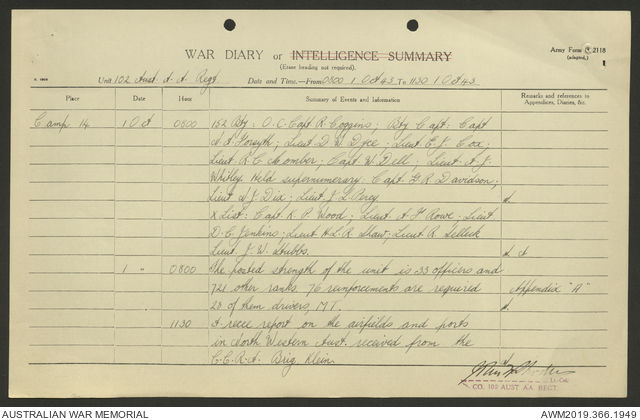 WAR DIARY or INTELLIGENCE SUMMARY
Army Form C 2118
(adapted.)
(Erase heading not required).
1
Unit 102 Aust. A.A. Regt. Date and Time—From 0800 1 Oct 43 To 1130 1 Oct 43
Place Date Hour Summary of Events and Information Remarks and references to Appendices, Diaries, &c.
Camp 14 1 Oct 0800 152 Bty: O.C. Capt R. Coggins; Bty Capt: Capt
A.F. Forsyth; Lieut D.W. Dyce; Lieut E.J. Cox;
Lieut R.C. Comber; Capt W. Dell; Lieut A.J.
Whitley. Held supernumerary: Capt G.R. Davidson;
Lieut W.J. Dix; Lieut J.L. Percy
X List: Capt K.P. Wood; Lieut A.F. Rowe; Lieut
D.C. Jenkins; Lieut H.L.R. Shaw; Lieut R. Selleck
Lieut J.W. Stubbs.
1 " 0800 The posted strength of the unit is 33 officers and
721 other ranks. 76 reinforcements are required Appendix "A"
28 of them drivers, M.T.
1130 A recce report on the airfields and ports
in North Western Aust. received from the
C.C.R.A. Brig. Klein.
Lt-Col
CO. 102 AUST AA. REGT.
AUSTRALIAN WAR MEMORIAL
AWM2019.366.1949